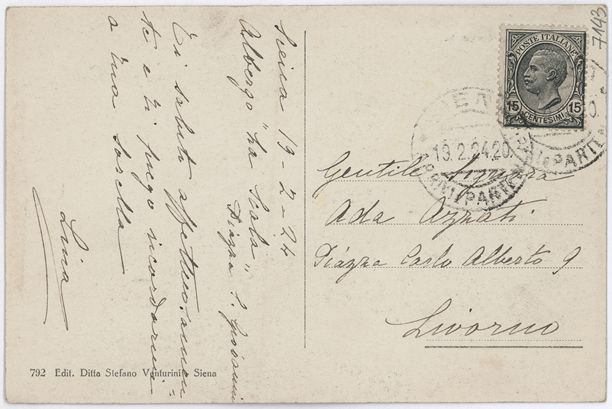 Siena 19-2-24
Albergo "La Scala"
Piazza S. Giovanni
Ti saluto affettuosamen-
te e ti prego ricordarmi
a tua sorella
Lina
792 Edit. Ditta Stefano Venturini - Siena
POSTE ITALIANE
15 15
CENTESIMI
19.2.24.20
ARRIVI E PARTENZE
Gentile Signora
Ada Azzati
Piazza Carlo Alberto 9
Livorno
7143